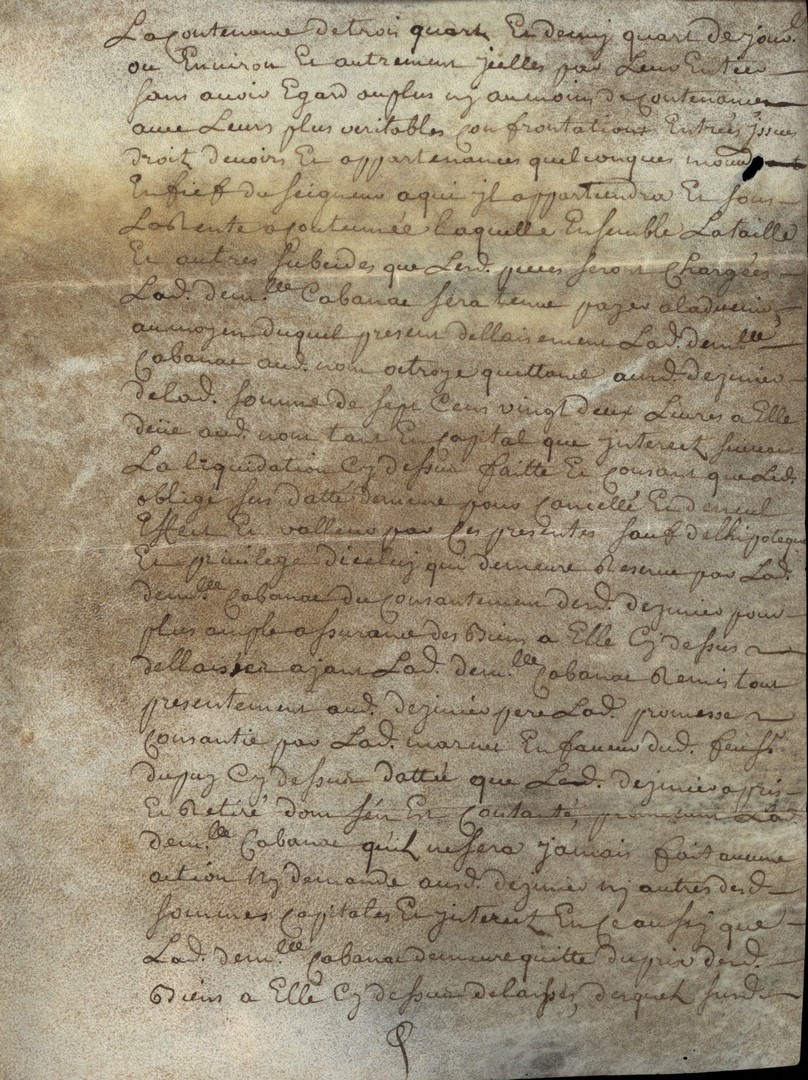 La contenance de trois quartz Et demy quart de jour.l
ou Environ Et autrement jcelles par Leur Entier
sans avoir Egard au plus ny au moins de contenance
avec Leurs plus veritables confrontations Entrées jssues
droit devoirs Et appartenances quelconques mouv.t
En fief du seigneur a qui jl appartiendra Et sous
La Rente acoutumée laquelle Ensemble La taille
Et autres subcides que Lesd. pieces seront chargées
Lad. dem.lle Cabanac sera tenue payer a ladvenir
au moyen duquel present dellaisement Lad. dem.lle
Cabanac aud. nom octroye quittance aud. dejunier
de lad. somme de sept Cens vingt deux Livres a Elle
deüe aud. nom tant En capital que jnterest suivant
La liquidation Cy dessus faitte Et consant que Led.
obligé sus datté demeure pour cancellé Et de Nul
Effect Et valleur par Ces presentes sauf de lhipoteque
Et privilege d'iceluy qui demeure Reservé par Lad.
dem.lle Cabanac du consantement dud. dejunier pour
plus ample assurance des Biens a Elle Cy dessus
dellaissés ayant Lad. dem.lle Cabanac Remis tout
presentement aud. dejunier pere Lad. promesse
consantie par Lad. marne En faveur dud. feu s.r
dupuy Cy dessus dattée que Led. dejunier a pris
Et Retiré dont s'en Est contanté, La
dem.lle Cabanac qu'il ne sera jamais fait aucune
action Ny demande aud. dejunier ny autres desd.
sommes capitales Et jnterest En ce aussy que
Lad. dem.lle Cabanac demeure quitte du prix desd.
Biens a Elle Cy dessus delaissés, desquels susd.